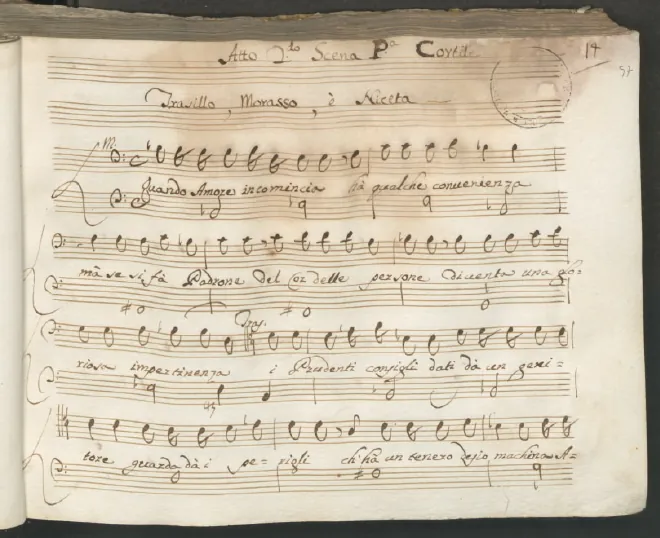 Atto 2.do Scena P.a Cortile
14
57
Trasillo, Morasso, è Niceta
M.
Quando Amore incomincia hà qualche convenienza
mà se si fà Padrone del Cor delle persone diventa una glo=
Tras.
riosa impertinenza i Prudenti consigli dati dà un geni=
tore guardo dà i pe=rigli ch'hà un tenero desio machina A=